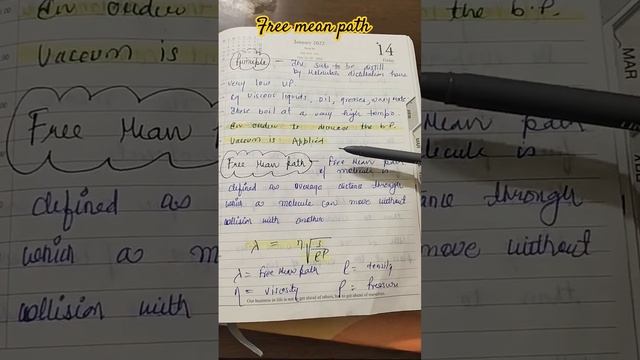 Free mean path
January 2022
14
Friday
Principle — The Subs to be distill
by Molecular distillation have
very low v.P.
Eg Viscous liquids, oil, greases, waxy mate
These boil at a very high temp.
In order to decrease the b.P.
Vacuum is Applied
Free Mean path — Free Mean path
of molecule is
defined as average distance through
which a molecule can move without
collision with another
λ = η√3/ρP
λ = Free Mean path ρ = density
η = viscosity P = Pressure
Our business in life is not to get ahead of others, but to get ahead of ourselves.
In order
the b.P.
Vacuum is
Free Mean
Mean path
defined as
through
which a m
move without
collision with
MAR